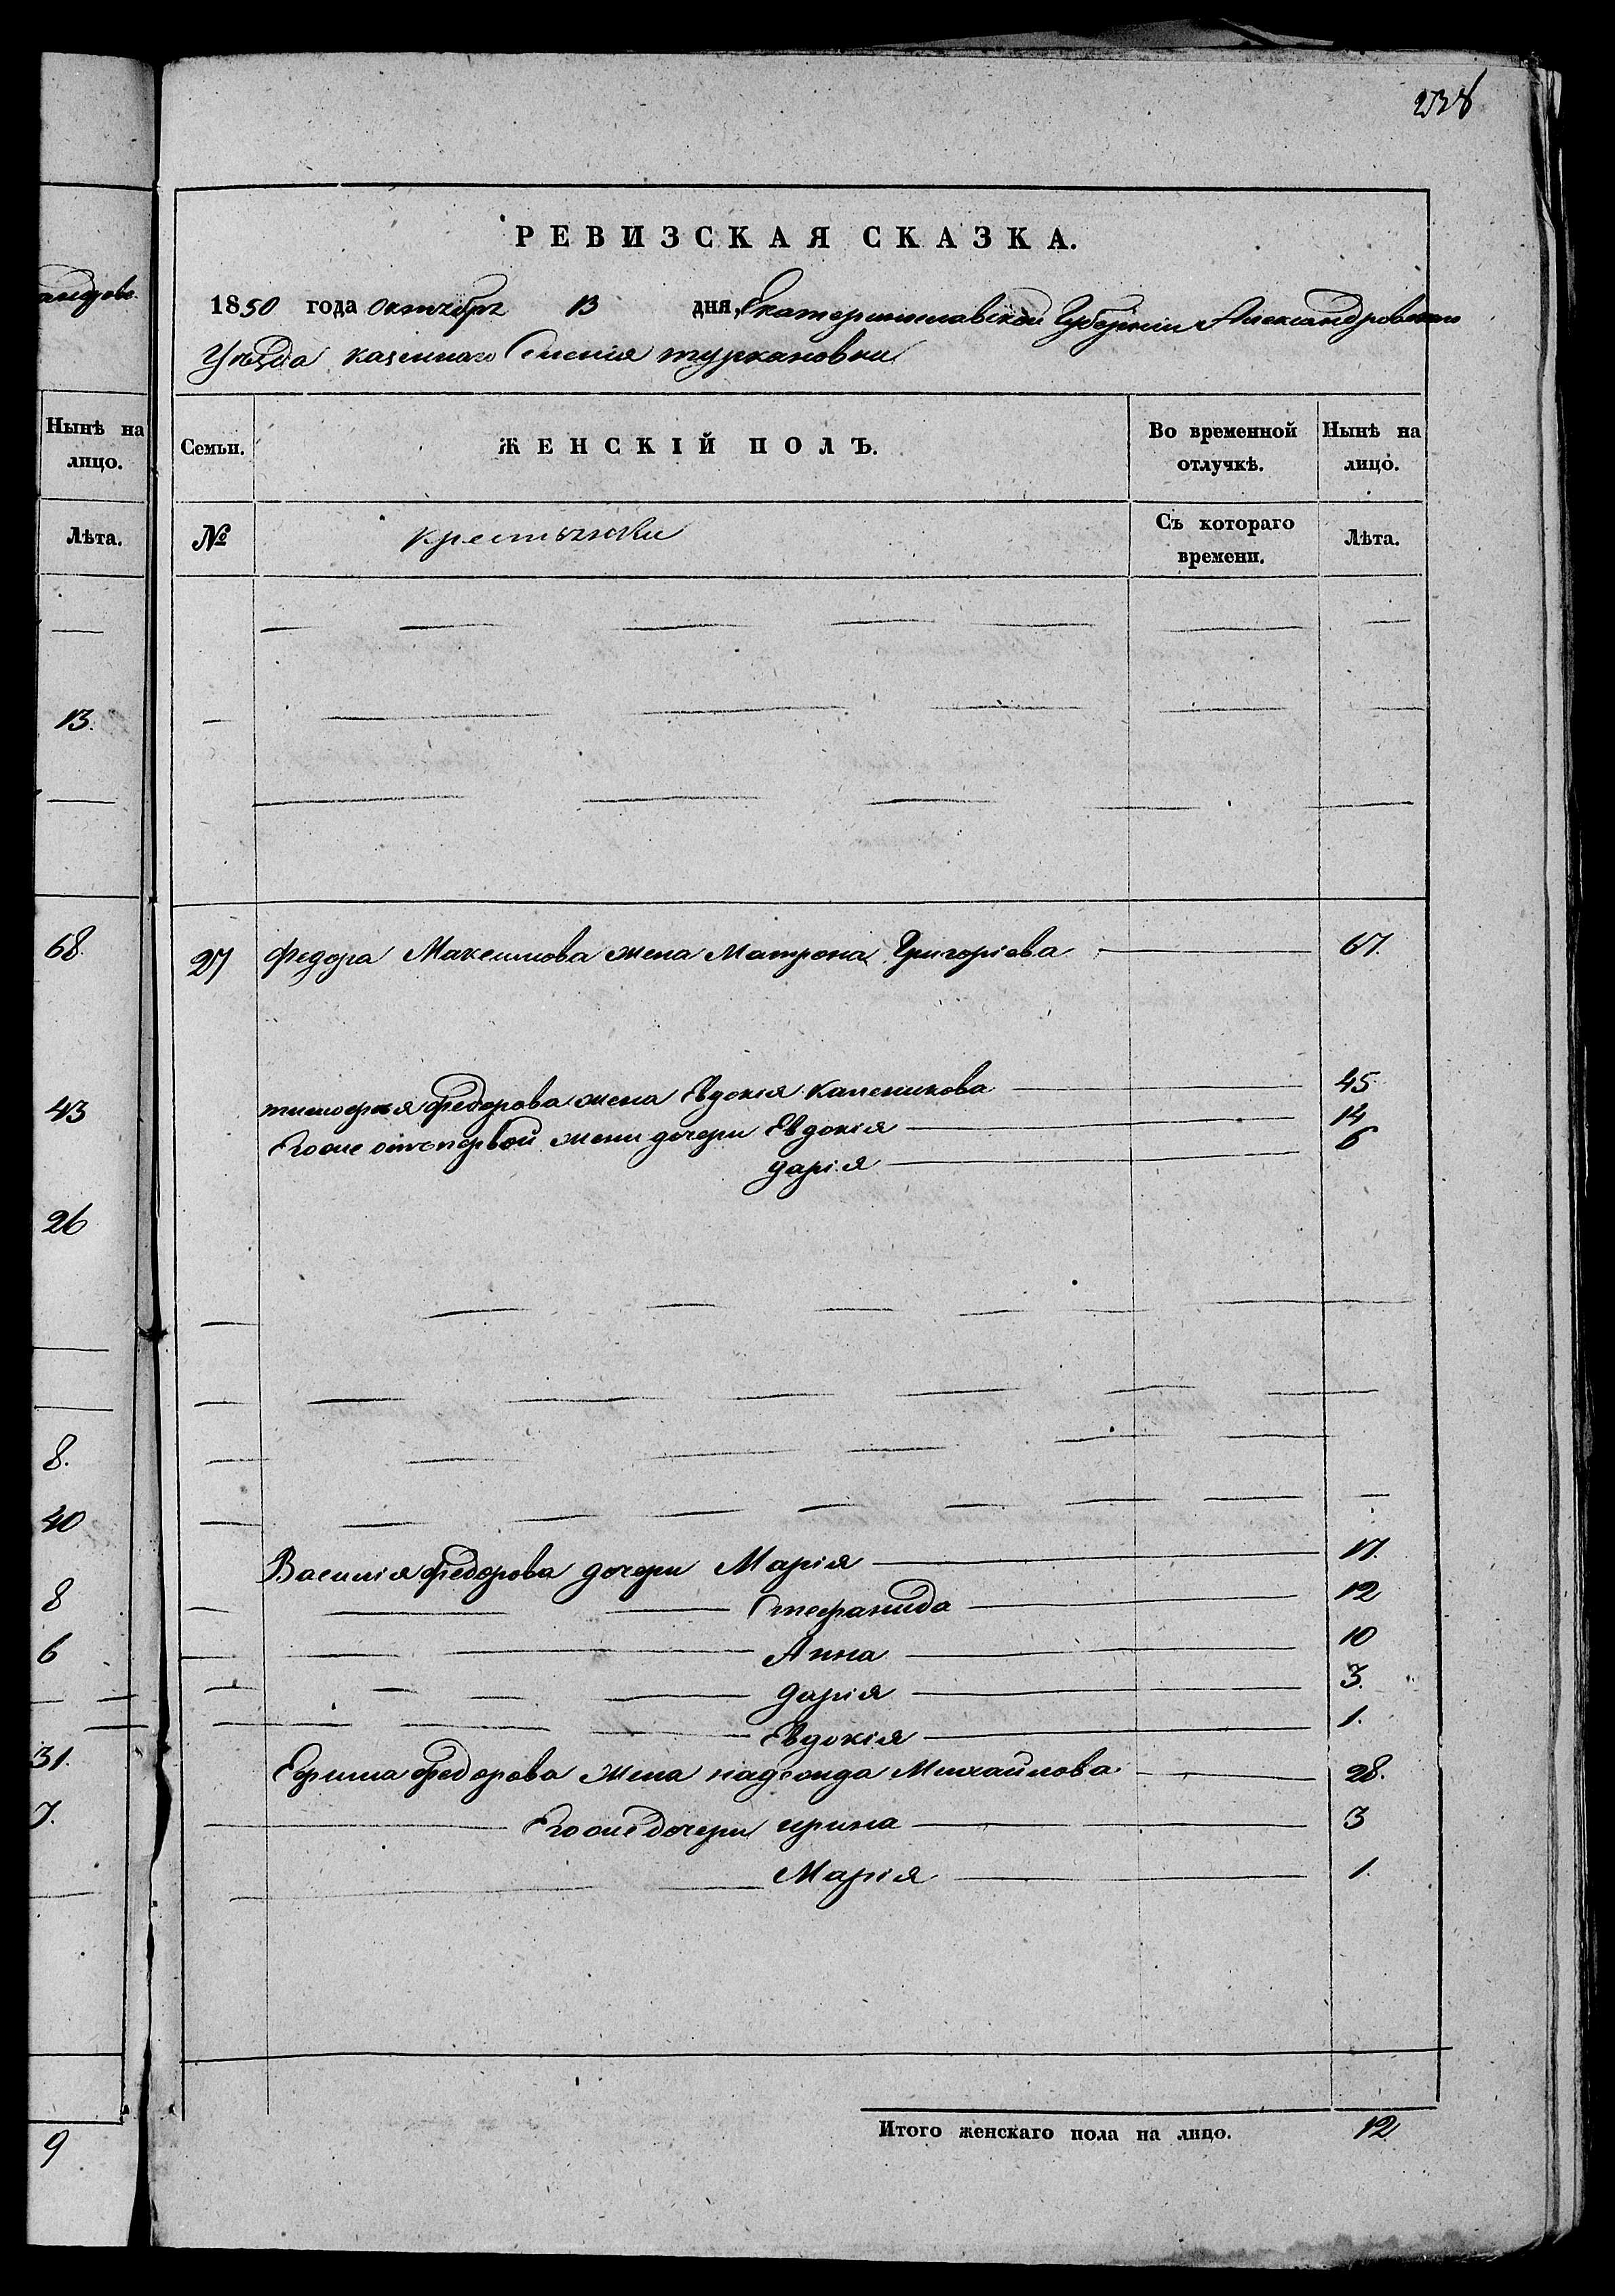 238
РЕВИЗСКАЯ СКАЗКА.
1850 года октября 13 дня, Екатеринославской Губернии Александровского
Уѣзда казенного Селенія туркановки
андров
Нынѣ на лицо.
Лѣта.
13.
68.
43
26
8.
40
8
6
31.
7.
9
Семьи. ЖЕНСКІЙ ПОЛЪ. Во временной отлучкѣ. Нынѣ на лицо.
№ крестьянки Съ котораго времени. Лѣта.
27 Федора Максимова жена Матрона Григоріева 67.
тимофея Федорова жена Евдокія Каленикова 45
Егоже отъ первой жени дочери Евдокія 14
дарія 6
Василія Федорова дочери Марія 17.
Стефанида 12
Анна 10
дарія 3.
Евдокія 1.
Ефима Федорова жена надежда Михайлова 28.
Егоже дочери ирина 3
Марія 1.
Итого женскаго пола на лицо. 12